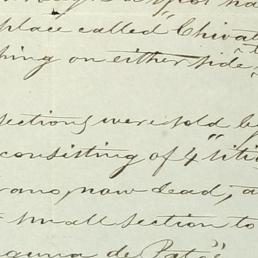 place called "Chivat
hing on either side
sections, were sold by
consisting of 4 "sitio
rano, now dead, a
small section to
aguna de Patos